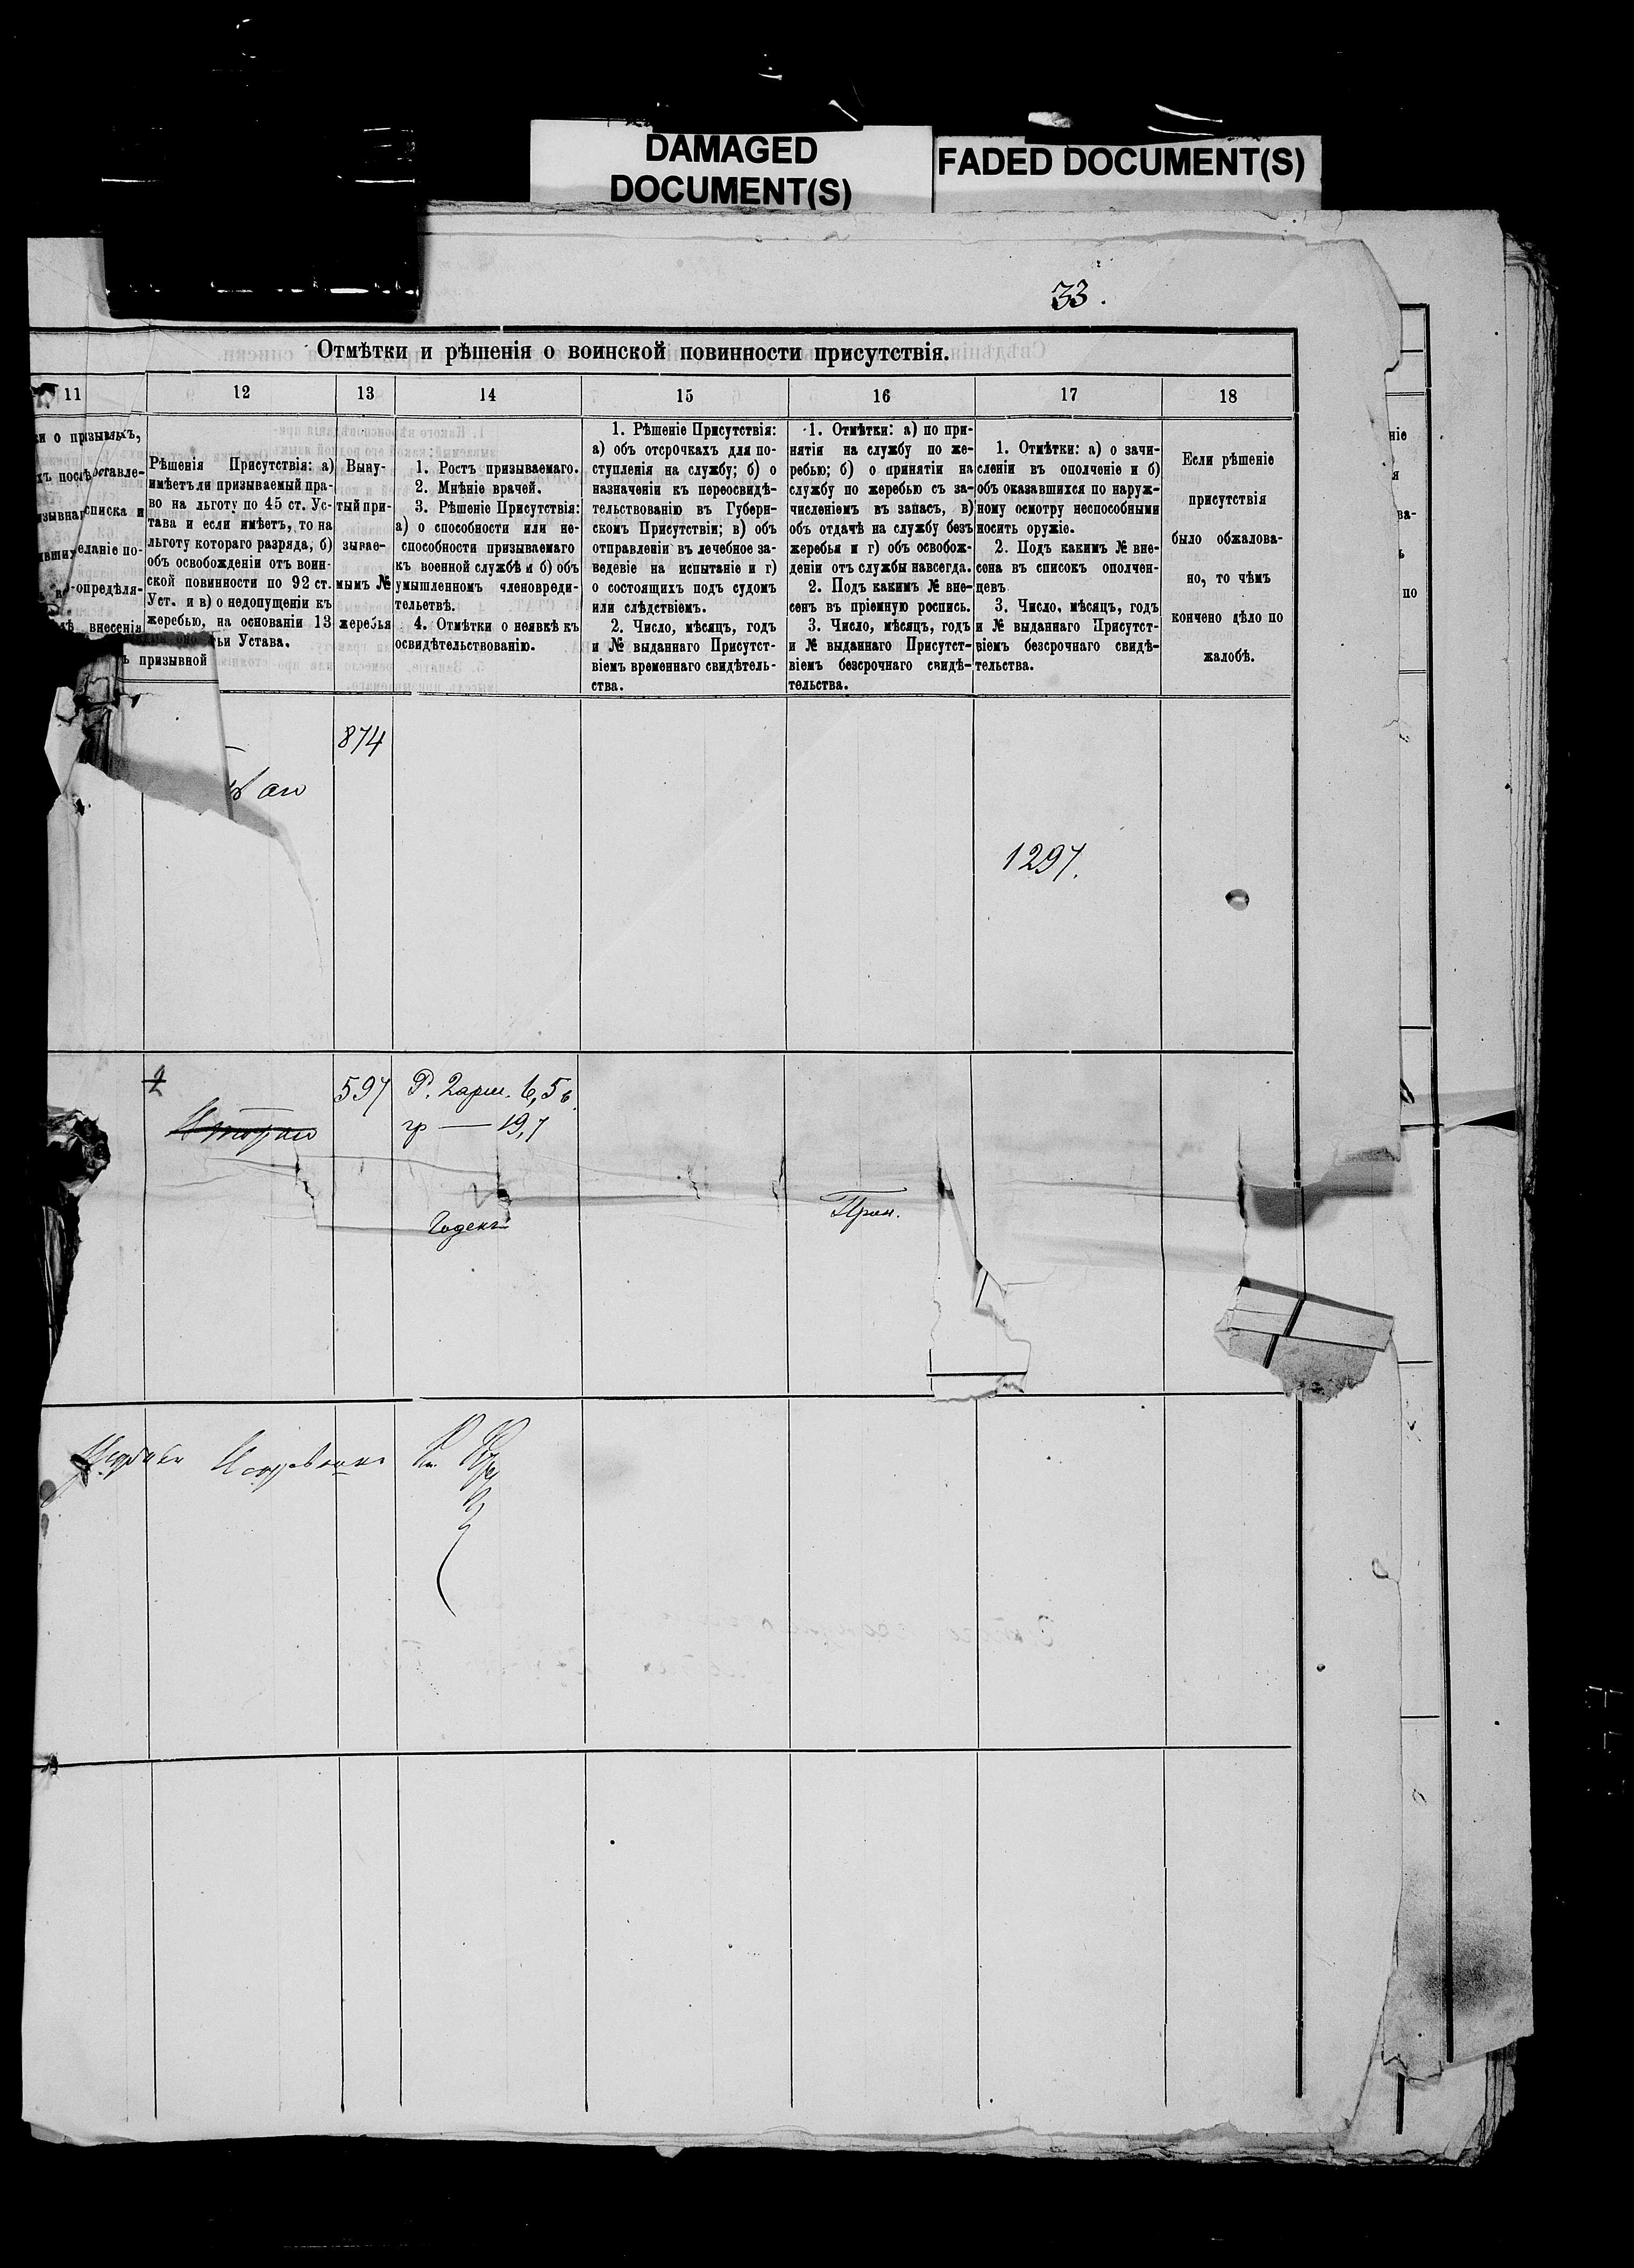 DAMAGED
DOCUMENT(S)
FADED DOCUMENT(S)
33.
Отмѣтки и рѣшенія о воинской повинности присутствія.
11
12
13
14
15
16
17
18
о призывахъ,
послѣ оставле-
списка и
еланіе по-
опредѣля-
внесенія
призывной
Рѣшенія Присутствія: а)
имѣетъ ли призываемый пра-
во на льготу по 45 ст. Ус-
тава и если имѣетъ, то на
льготу котораго разряда, б)
объ освобожденіи отъ воин-
ской повинности по 92 ст.
Уст. и в) о недопущеніи къ
жеребью, на основаніи 13
тьи Устава.
Выну-
тый при-
зывае-
мымъ №
жеребья
1. Ростъ призываемаго.
2. Мнѣніе врачей.
3. Рѣшеніе Присутствія:
а) о способности или не-
способности призываемаго
къ военной службѣ и б) объ
умышленномъ членовреди-
тельствѣ.
4. Отмѣтки о неявкѣ къ
освидѣтельствованію.
1. Рѣшеніе Присутствія:
а) объ отсрочкахъ для по-
ступленія на службу; б) о
назначеніи къ переосвидѣ-
тельствованію въ Губерн-
скомъ Присутствіи; в) объ
отправленіи въ лечебное за-
веденіе на испытаніе и г)
о состоящихъ подъ судомъ
или слѣдствіемъ.
2. Число, мѣсяцъ, годъ
и № выданнаго Присутст-
віемъ временнаго свидѣтель-
ства.
1. Отмѣтки: а) по при-
нятіи на службу по же-
ребью; б) о принятіи на
службу по жеребью съ за-
численіемъ въ запасъ, в)
объ отдачѣ на службу безъ
жеребья и г) объ освобож-
деніи отъ службы навсегда.
2. Подъ какимъ № вне-
сенъ въ пріемную роспись.
3. Число, мѣсяцъ, годъ
и № выданнаго Присутст-
віемъ безсрочнаго свидѣ-
тельства.
1. Отмѣтки: а) о зачи-
сленіи въ ополченіе и б)
объ оказавшихся по наруж-
ному осмотру неспособными
носить оружіе.
2. Подъ какимъ № вне-
сена въ списокъ ополчен-
цевъ
3. Число, мѣсяцъ, годъ
и № выданнаго Присутст-
віемъ безсрочнаго свидѣ-
тельства.
Если рѣшеніе
присутствія
было обжалова-
но, то чѣмъ
кончено дѣло по
жалобѣ.
874
1297.
2
597
Р. 2арш. 6,5 в.
гр — 19,7
Годенъ
Прин.